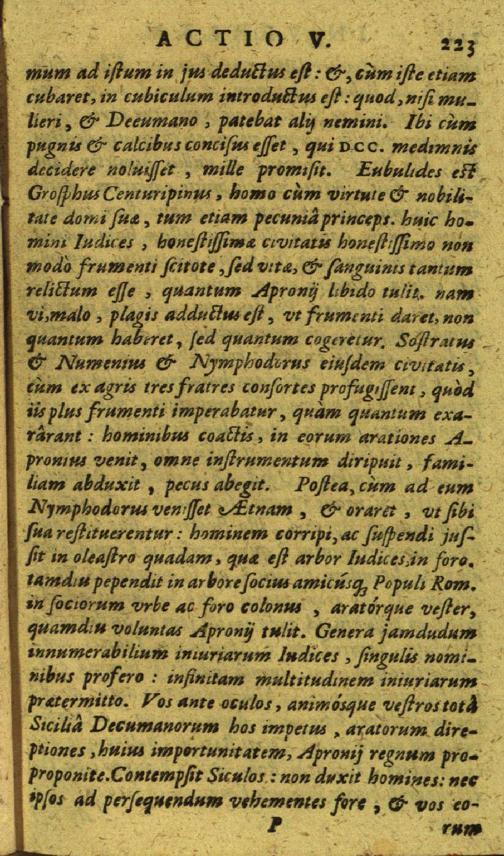 ACTIO V. 223
mum ad iſtum in jus deductus eſt: &, cùm iſte etiam
cubaret, in cubiculum introductus eſt: quod, niſi mu-
lieri, & Decumano, patebat alij nemini. Ibi cùm
pugnis & calcibus conciſus eſſet, qui DCC. medimnis
decidere noluiſſet, mille promiſit. Eubulides eſt
Groſphus Centuripinus, homo cùm virtute & nobili-
tate domi ſuæ, tum etiam pecuniâ princeps. huic ho-
mini Iudices, honeſtiſſimæ civitatis honeſtiſſimo non
modò frumenti ſcitote, ſed vitæ, & ſanguinis tantum
relictum eſſe, quantum Apronij libido tulit. nam
vi, malo, plagis adductus eſt, vt frumenti daret, non
quantum haberet, ſed quantum cogeretur. Soſtratus
& Numenius & Nymphodorus eiuſdem civitatis,
cùm ex agris tres fratres conſortes profugiſſent, quòd
iis plus frumenti imperabatur, quàm quantum exa-
rârant: hominibus coactis, in eorum arationes A-
pronius venit, omne inſtrumentum diripuit, fami-
liam abduxit, pecus abegit. Poſtea, cùm ad eum
Nymphodorus veniſſet Ætnam, & oraret, vt ſibi
ſua reſtituerentur: hominem corripi, ac ſuſpendi juſ-
ſit in oleaſtro quadam, quæ eſt arbor Iudices, in foro.
tamdiu pependit in arbore ſocius amicúsq; Populi Rom.
in ſociorum vrbe ac foro colonus, aratórque veſter,
quamdiu voluntas Apronij tulit. Genera jamdudum
innumerabilium iniuriarum Iudices, ſingulis nomi-
nibus profero: infinitam multitudinem iniuriarum
prætermitto. Vos ante oculos, animósque veſtros totâ
Siciliâ Decumanorum hos impetus, aratorum dire-
ptiones, huius importunitatem, Apronij regnum pro-
proponite. Contempſit Siculos: non duxit homines: nec
ipſos ad perſequendum vehementes fore, & vos eo-
P rum